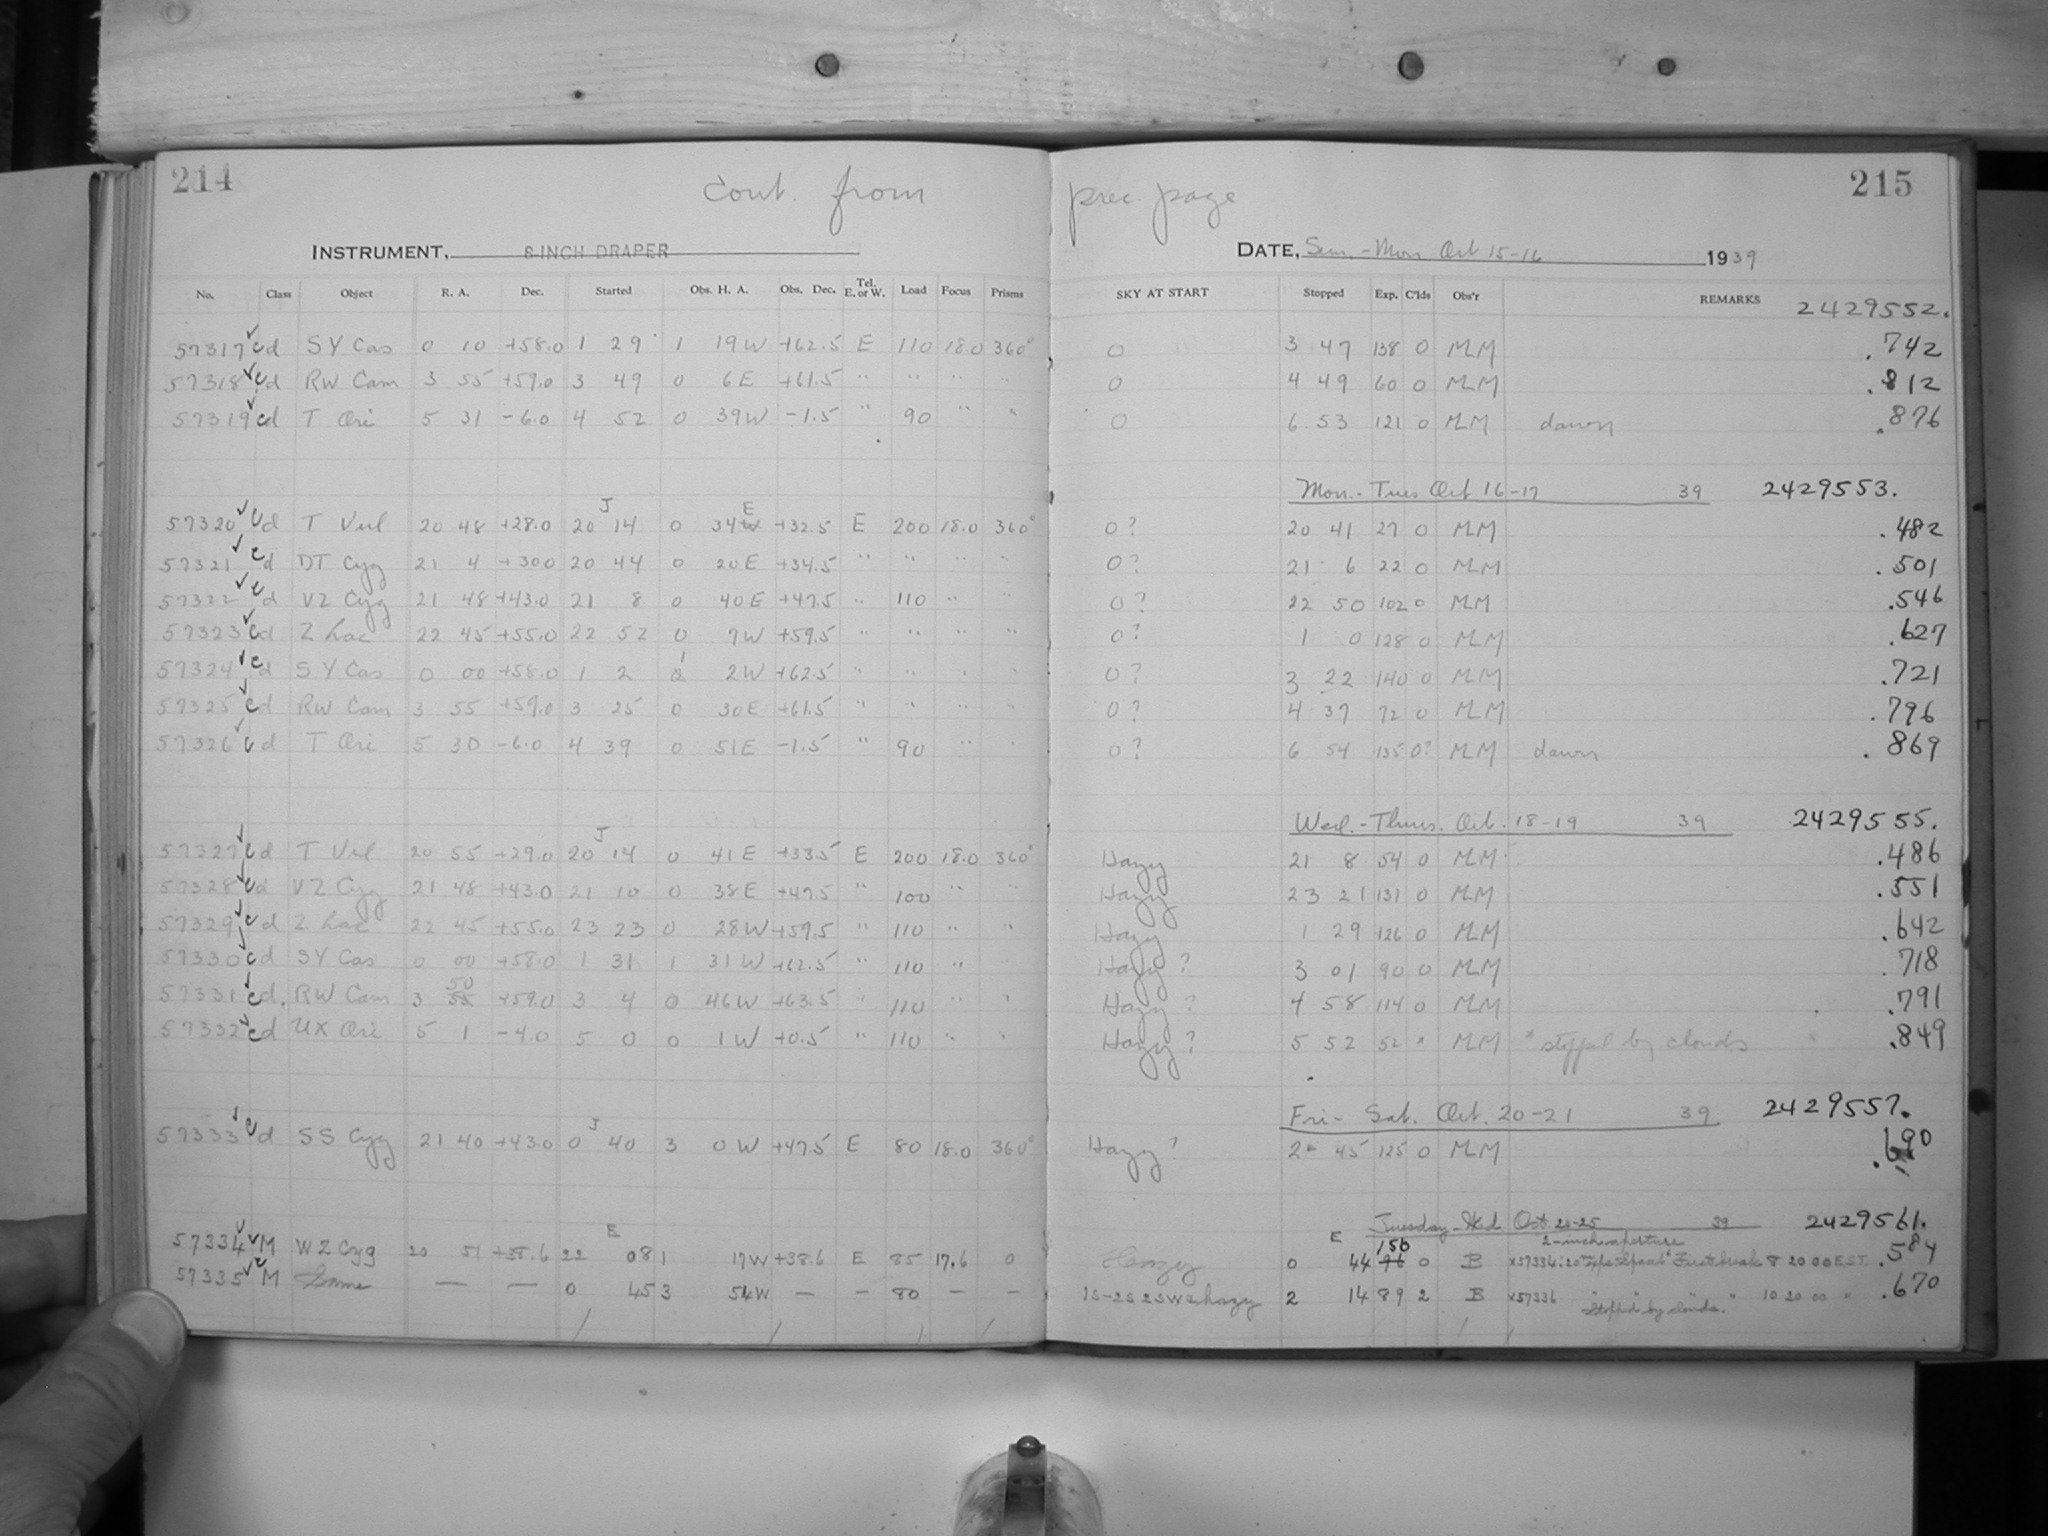 214
215
cont. from prec. page
INSTRUMENT, 8-INCH DRAPER DATE, Sun.-Mon Oct 15-16 1939
No. Class Object R. A. Dec. Started Obs. H. A. Obs. Dec. Tel. E. or W. Load Focus Prisms SKY AT START Stopped Exp. C'lds Obs'r REMARKS
2429552.
57317 cd SY Cas 0 10 +58.0 1 29 1 19W +62.5 E 110 18.0 360° 0 3 47 138 0 MLM .742
57318 cd RW Cam 3 55 +59.0 3 49 0 6E +61.5 " " " " 0 4 49 60 0 MLM .812
57319 cd T Ori 5 31 -6.0 4 52 0 39W -1.5 " 90 " " 0 6 53 121 0 MLM dawn .876
Mon.-Tues Oct 16-17 39 2429553.
57320 cd T Vul 20 48 +28.0 20 J 14 0 34 E +32.5 E 200 18.0 360° 0? 20 41 27 0 MLM .482
57321 cd DT Cyg 21 4 +30.0 20 44 0 20E +34.5 " " " " 0? 21 6 22 0 MLM .501
57322 cd VZ Cyg 21 48 +43.0 21 8 0 40E +47.5 " 110 " " 0? 22 50 102 0 MLM .546
57323 cd Z Lac 22 45 +55.0 22 52 0 7W +59.5 " " " " 0? 1 0 128 0 MLM .627
57324 cd SY Cas 0 00 +58.0 1 2 1 2W +62.5 " " " " 0? 3 22 140 0 MLM .721
57325 cd RW Cam 3 55 +59.0 3 25 0 30E +61.5 " " " " 0? 4 37 72 0 MLM .796
57326 cd T Ori 5 30 -6.0 4 39 0 51E -1.5 " 90 " " 0? 6 54 135 0? MLM dawn .869
Wed.-Thurs. Oct. 18-19 39 2429555.
57327 cd T Vul 20 55 +29.0 20 J 14 0 41E +33.5 E 200 18.0 360° Hazy 21 8 54 0 MLM .486
57328 cd VZ Cyg 21 48 +43.0 21 10 0 38E +47.5 " 100 " " Hazy 23 21 131 0 MLM .551
57329 cd Z Lac 22 45 +55.0 23 23 0 28W +59.5 " 110 " " Hazy 1 29 126 0 MLM .642
57330 cd SY Cas 0 00 +58.0 1 31 1 31W +62.5 " 110 " " Hazy ? 3 01 90 0 MLM .718
57331 cd. RW Cam 3 50 +59.0 3 4 0 46W +63.5 " 110 " " Hazy ? 4 58 114 0 MLM .791
57332 cd UX Ori 5 1 -4.0 5 0 0 1W +0.5 " 110 " " Hazy ? 5 52 52 * MLM * stopped by clouds .849
Fri- Sat. Oct. 20-21 39 2429557.
57333 cd SS Cyg 21 40 +43.0 0 J 40 3 0W +47.5 E 80 18.0 360° Hazy ? 2 45 125 0 MLM .690
Tuesday-Wed Oct 24-25 39 2429561.
2-inch aperture
57334 M WZ Cyg 20 51 +38.6 22 E 08 1 17W +38.6 E 85 17.6 0 Hazy 0 E 44 156 0 B First break 8 20 00 EST .584
57335 M Same — — 0 45 3 54W — — 80 — — 1S-2S 2SW & hazy 2 14 89 2 B x57336 " " 10 20 00 " .670
Stopped by clouds.